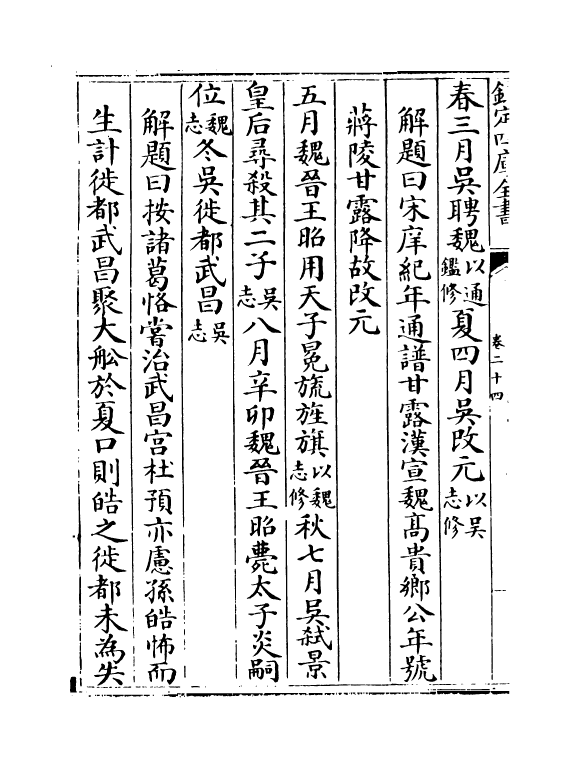 欽定四庫全書
卷二十四
春三月吳聘魏以通鑑修夏四月吳改元以吳志修
解題曰宋庠紀年通譜甘露漢宣魏髙貴鄉公年號
蔣陵甘露降故改元
五月魏晉王昭用天子冕旒旌旗以魏志修秋七月吳弑景
皇后尋殺其二子吳志八月辛卯魏晉王昭薨太子炎嗣
位魏志冬吳徙都武昌吳志
解題曰按諸葛恪嘗治武昌宫杜預亦慮孫皓怖而
生計徙都武昌聚大舩於夏口則皓之徙都未為失